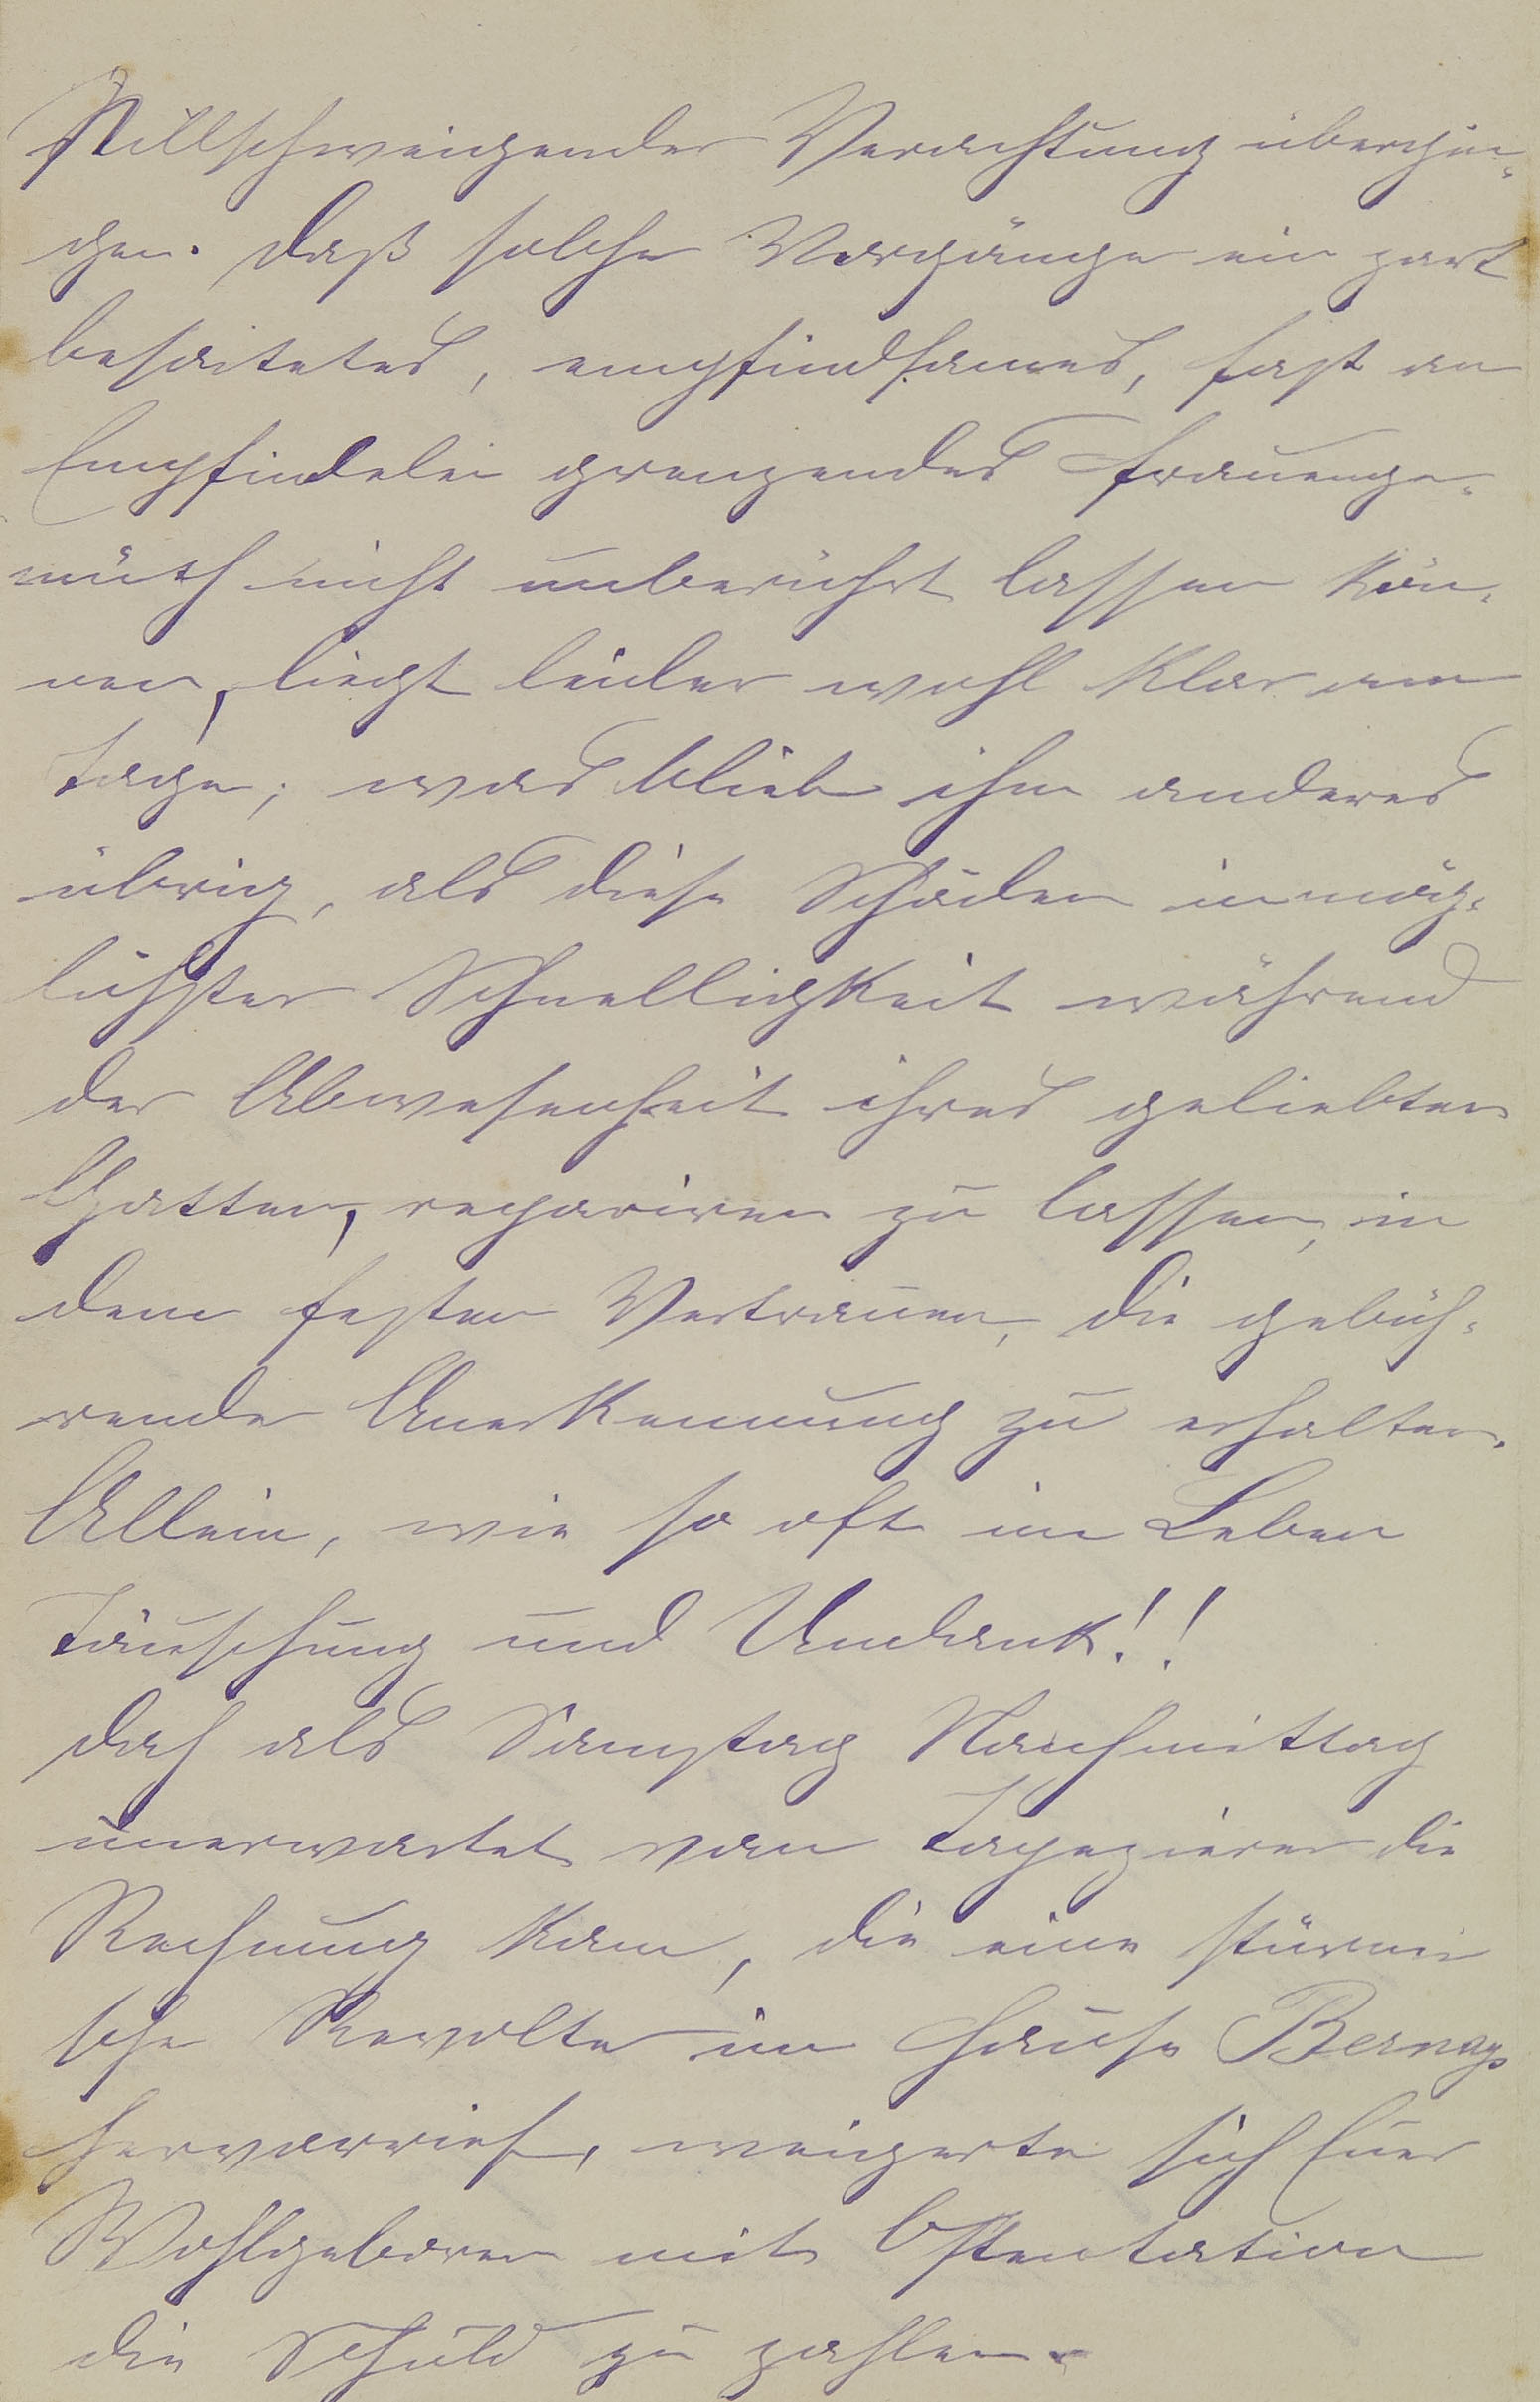 Stillschweigender Verachtung übergin-
gen. Daß solche Vorgänge ein zart
besaitetes, empfindsames, fast an
Empfindelei grenzendes Frauenge-
müth nicht unberührt lassen kön-
nen, liegt leider wohl klar am
Tage; was blieb ihm anderes
übrig, als diese Schäden in mög-
lichster Schnelligkeit während
der Abwesenheit ihres geliebten
Gatten, repariren zu lassen, in
dem festen Vertrauen, die gebüh-
rende Anerkennung zu erhalten.
Allein, wie so oft im Leben
Täuschung und Undank!!
Doch als Samstag Nachmittag
unerwartet vom Tapezierer die
Rechnung kam, die eine stürmi
sche Revolte im Hause Bernays
hervorrief, weigerte sich Euer
Wohlgeboren mit Ostentation
die Schuld zu zahlen.